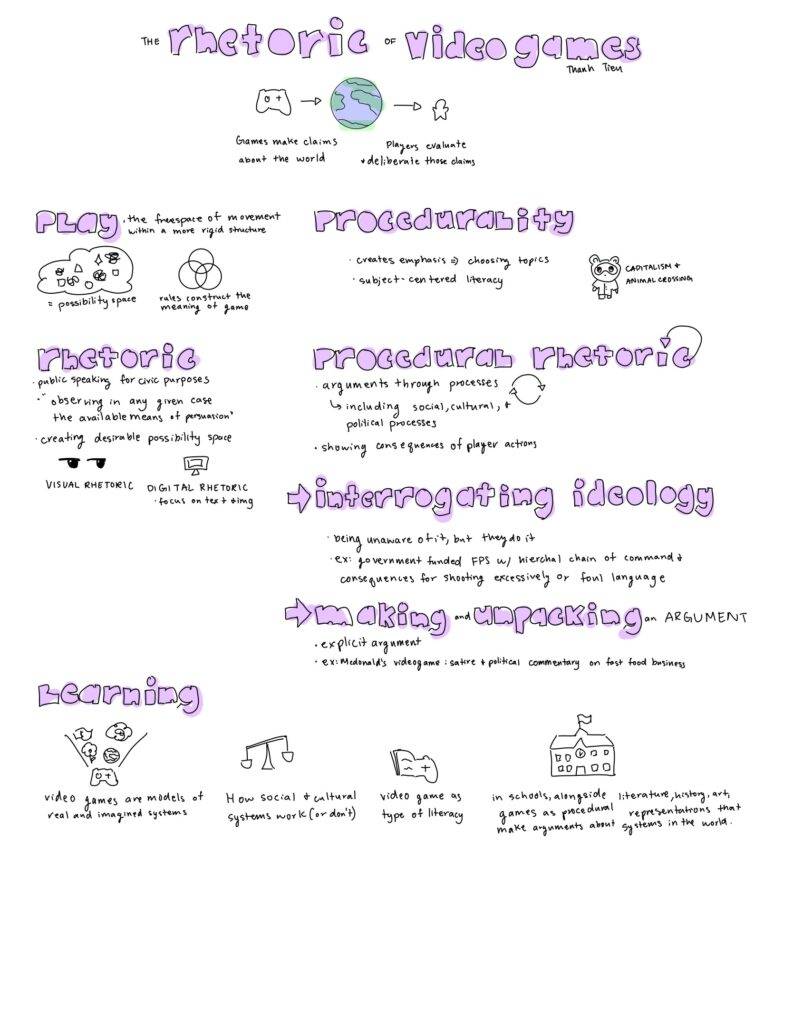 THE rhetoric OF video games
Thanh Tieu
Games make claims
about the world
Players evaluate
+ deliberate those claims
PLAY . the freespace of movement
within a more rigid structure
= possibility space
rules construct the
meaning of game
Procedurality
· creates emphasis => choosing topics
· subject-centered literacy
CAPITALISM +
ANIMAL CROSSING
rhetoric
· public speaking for civic purposes
· " observing in any given case
the available means of persuasion"
· creating desirable possibility space
VISUAL RHETORIC
DIGITAL RHETORIC
· focus on text + img
Procedural rhetoric
· arguments through processes
↳ including social, cultural, +
political processes
· showing consequences of player actions
→ interrogating ideology
· being unaware of it, but they do it
· ex: government funded FPS w/ hierchal chain of command +
consequences for shooting excessively or foul language
→ making and unpacking an ARGUMENT
· explicit argument
· ex: Mcdonald's videogame : satire + political commentary on fast food business
Learning
video games are models of
real and imagined systems
How social + cultural
systems work (or don't)
video game as
type of literacy
in schools, alongside literature, history, art,
games as procedural representations that
make arguments about systems in the world.